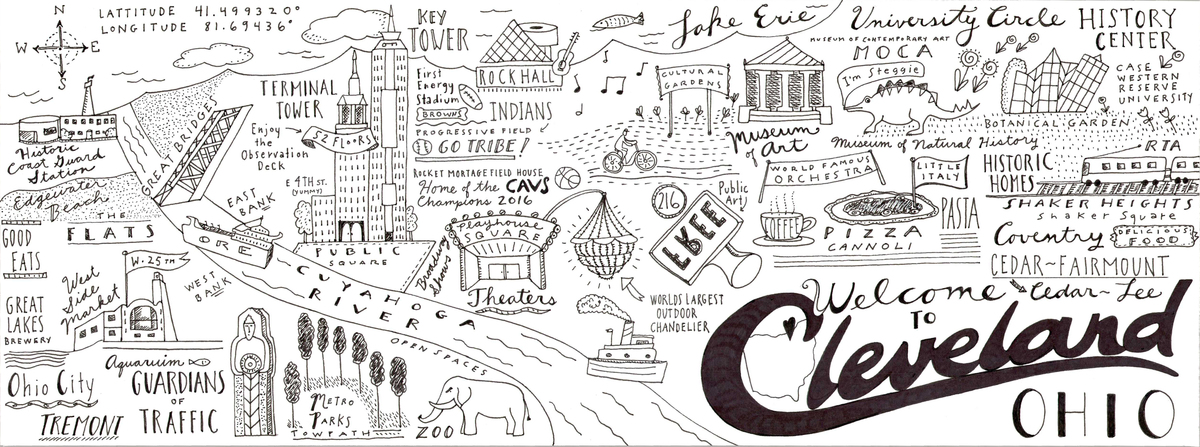 LATTITUDE 41.499320°
LONGITUDE 81.69436°
N
W
E
S
Historic
Coast Guard
Station
Edgewater
Beach
THE
FLATS
GOOD
EATS
GREAT
LAKES
BREWERY
West
Side
Market
W. 25TH
Ohio City
TREMONT
Aquaruim
GUARDIANS
OF
TRAFFIC
GREAT BRIDGES
ORE
EAST
BANK
WEST
BANK
TERMINAL
TOWER
Enjoy
the
Observation
Deck
52 FLOORS
E 4TH ST.
(YUMMY)
PUBLIC
SQUARE
CUYAHOGA
RIVER
OPEN SPACES
METRO
PARKS
TOWPATH
ZOO
KEY
TOWER
ROCK HALL
First
Energy
Stadium
BROWNS
INDIANS
PROGRESSIVE FIELD
GO TRIBE!
ROCKET MORTAGE FIELD HOUSE
Home of the CAVS
Champions 2016
Broadway
Shows
Playhouse
SQUARE
Theaters
WORLDS LARGEST
OUTDOOR
CHANDELIER
Lake Erie
CULTURAL
GARDENS
Museum
of Art
216
Public
Art
FREE
University Circle
MUSEUM OF CONTEMPORARY ART
MOCA
I'm Steggie
Museum of Natural History
HISTORY
CENTER
CASE
WESTERN
RESERVE
UNIVERSITY
BOTANICAL GARDEN
WORLD FAMOUS
ORCHESTRA
LITTLE
ITALY
PIZZA
PASTA
CANNOLI
HISTORIC
HOMES
RTA
SHAKER HEIGHTS
Shaker Square
Coventry
DELICIOUS
FOOD
CEDAR~FAIRMOUNT
Cedar~Lee
Welcome
TO
Cleveland
OHIO